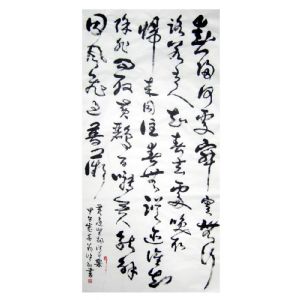 春歸何處寂寞無行
路若有人知春去處喚取
歸來同住春無蹤迹誰知
除非問取黃鸝百囀無人能解
因風飛過薔薇